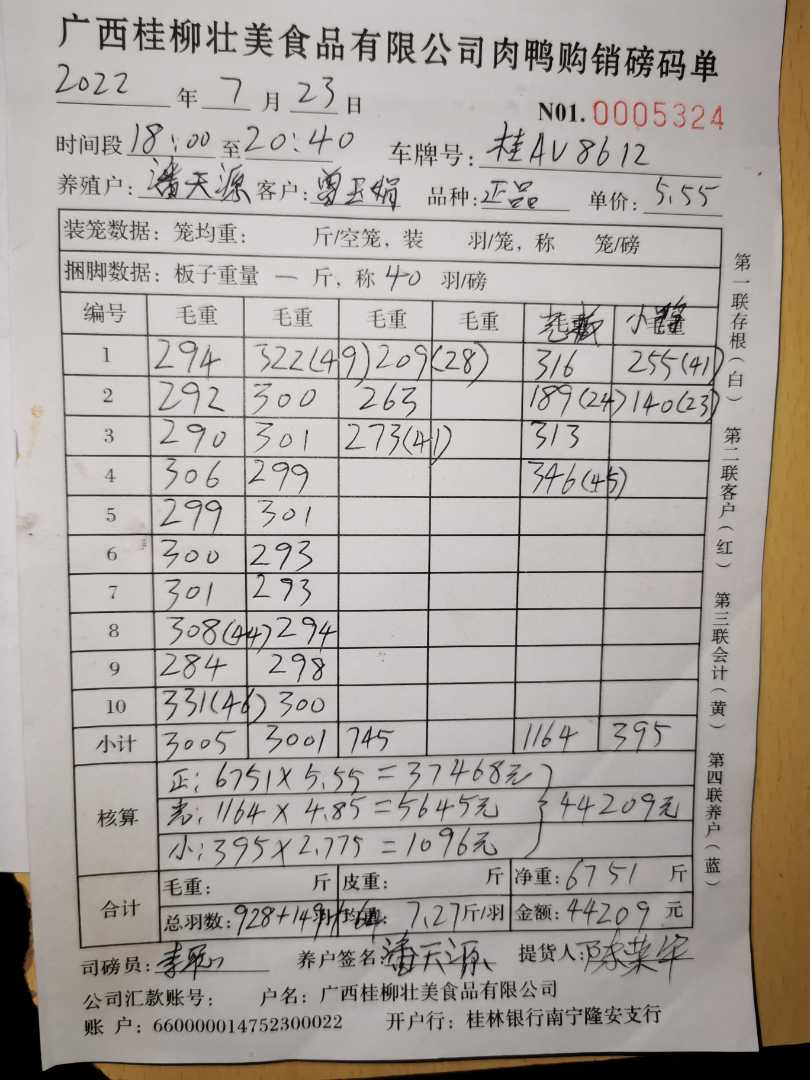 广西桂柳壮美食品有限公司肉鸭购销磅码单
2022 年 7 月 23 日 N01. 0005324
时间段 18:00 至 20:40 车牌号: 桂AV8612
养殖户: 潘天源 客户: 曾玉娟 品种: 正品 单价: 5.55
装笼数据: 笼均重: 斤/空笼, 装 羽/笼, 称 笼/磅
捆脚数据: 板子重量 一 斤, 称 40 羽/磅
编号 毛重 毛重 毛重 毛重 小
1 294 322(49) 209(28) 316 255(41)
2 292 300 263 189(24) 140(23)
3 290 301 273(41) 313
4 306 299 346(45)
5 299 301
6 300 293
7 301 293
8 308(44) 294
9 284 298
10 331(46) 300
小计 3005 3001 745 1164 395
核算
正: 6751×5.55=37468元
1164×4.85=5645元 44209元
小: 395×2.775=1096元
合计
毛重: 斤 皮重: 斤 净重: 6751 斤
总羽数: 928+149+64 7.27斤/羽 金额: 44209 元
司磅员: 养户签名: 潘天源 提货人: 陈荣军
公司汇款账号: 户名: 广西桂柳壮美食品有限公司
账 户: 660000014752300022 开户行: 桂林银行南宁隆安支行
第一联存根(白)
第二联客户(红)
第三联会计(黄)
第四联养户(蓝)